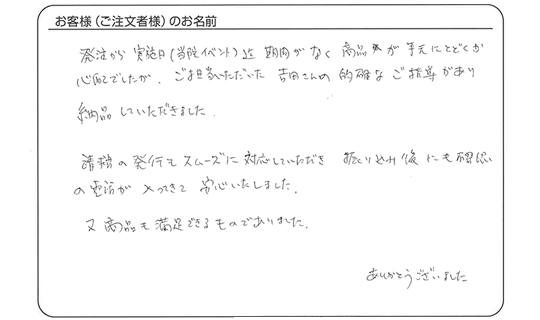 お客様（ご注文者様）のお名前
発注から実施日（当院イベント）迄期間がなく商品が手元にとどくか
心配でしたが、ご担当いただいた吉田さんの的確なご指導があり
納品していただきました。
請求の発行もスムーズに対応していただき振り込み後にも確認
の電話が入ってきて安心いたしました。
又商品も満足できるものでありました。
ありがとうございました